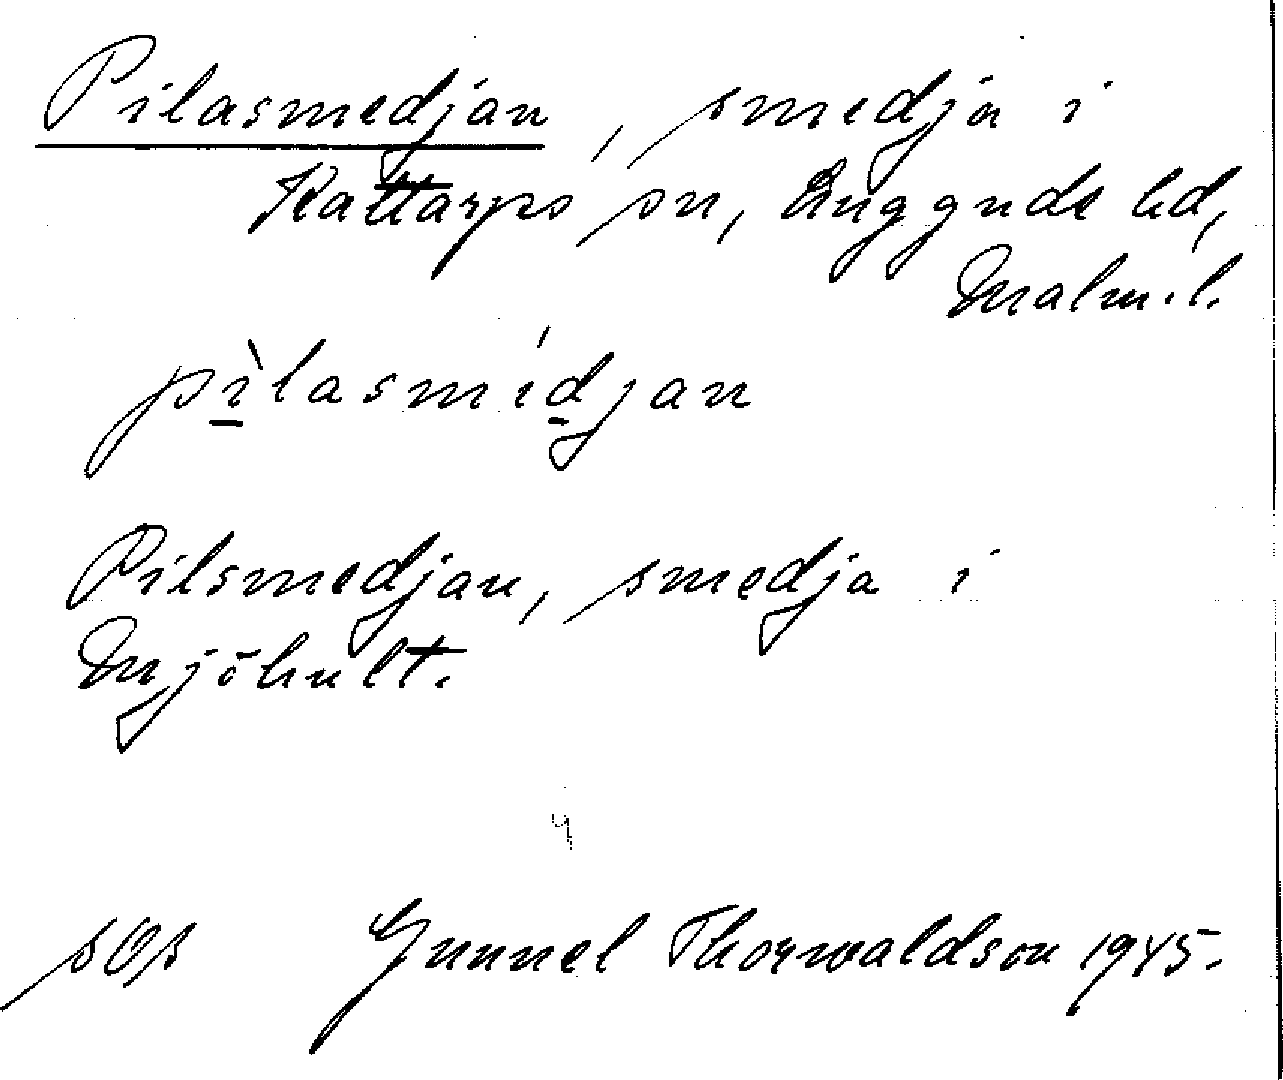 Pilasmedjan, smedja i
Kattarps sn, Luggude hd,
Malm.l.
pìlasmídjan
Pilsmedjan, smedja i
Mjöhult.
4
Gunnel Thorwaldson 1945.